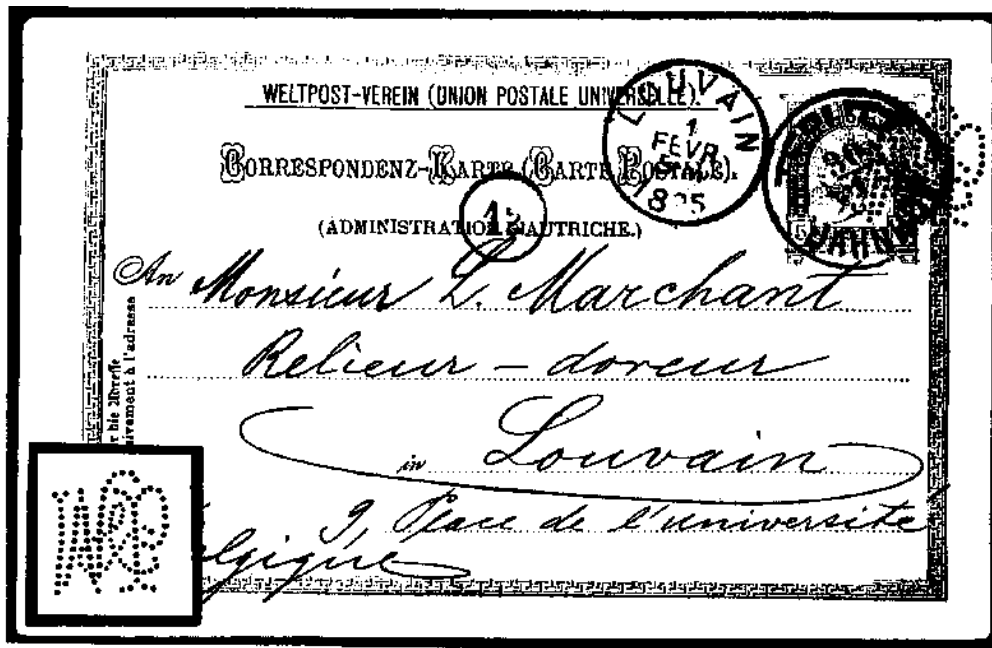 WELTPOST-VEREIN (UNION POSTALE UNIVERSELLE).
CORRESPONDENZ-KARTE (CARTE POSTALE).
(ADMINISTRATION D'AUTRICHE.)
LOUVAIN
1
FEVR
1895
An Monsieur L. Marchant
Relieur - doreur
in Louvain
9, Place de l'université
Belgique